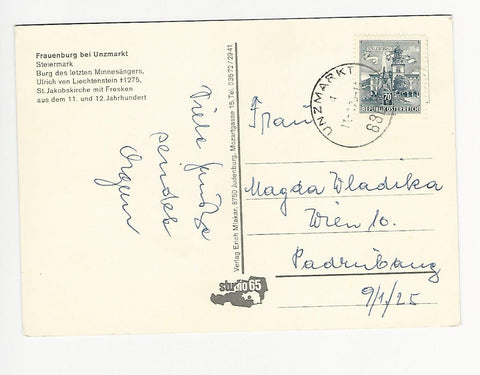 Frauenburg bei Unzmarkt
Steiermark
Burg des letzten Minnesängers,
Ulrich von Liechtenstein †1275,
St.Jakobskirche mit Fresken
aus dem 11. und 12. Jahrhundert
Viele Grüße
sendet
Verlag Erich Mlakar, 8750 Judenburg, Mozartgasse 15, Tel. 03572/2941
studio 65
UNZMARKT
70
REPUBLIK ÖSTERREICH
Frau
Magda Wladika
Wien 10.
9/1/25